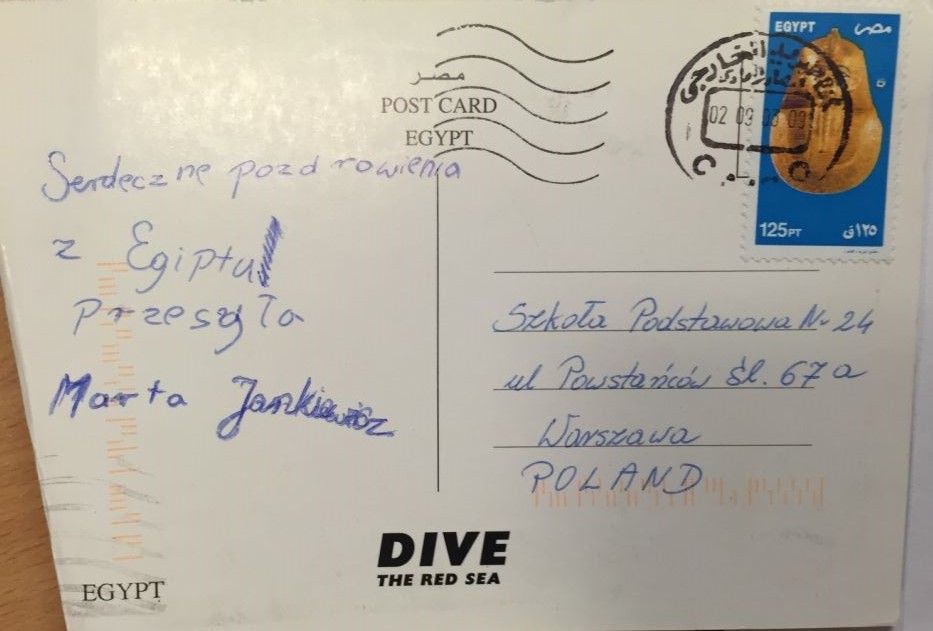 مصر
POST CARD
EGYPT
EGYPT مصر
125PT ١٢٥ق
02 09 03 09
Serdeczne pozdrowienia
z Egiptu
przesyła
Marta Jankiewicz
Szkoła Podstawowa Nr 24
ul Powstańców śl. 67 a
Warszawa
POLAND
DIVE
THE RED SEA
EGYPT